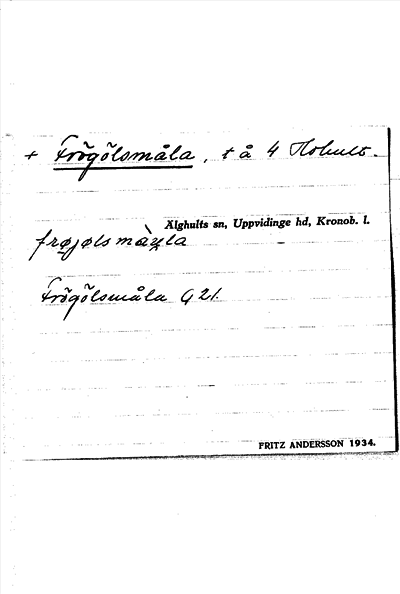 + Frögölsmåla, t å 4 Hohult.
Älghults sn, Uppvidinge hd, Kronob. l.
frøjølsmàula
Frögölsmåla G 21.
FRITZ ANDERSSON 1934.